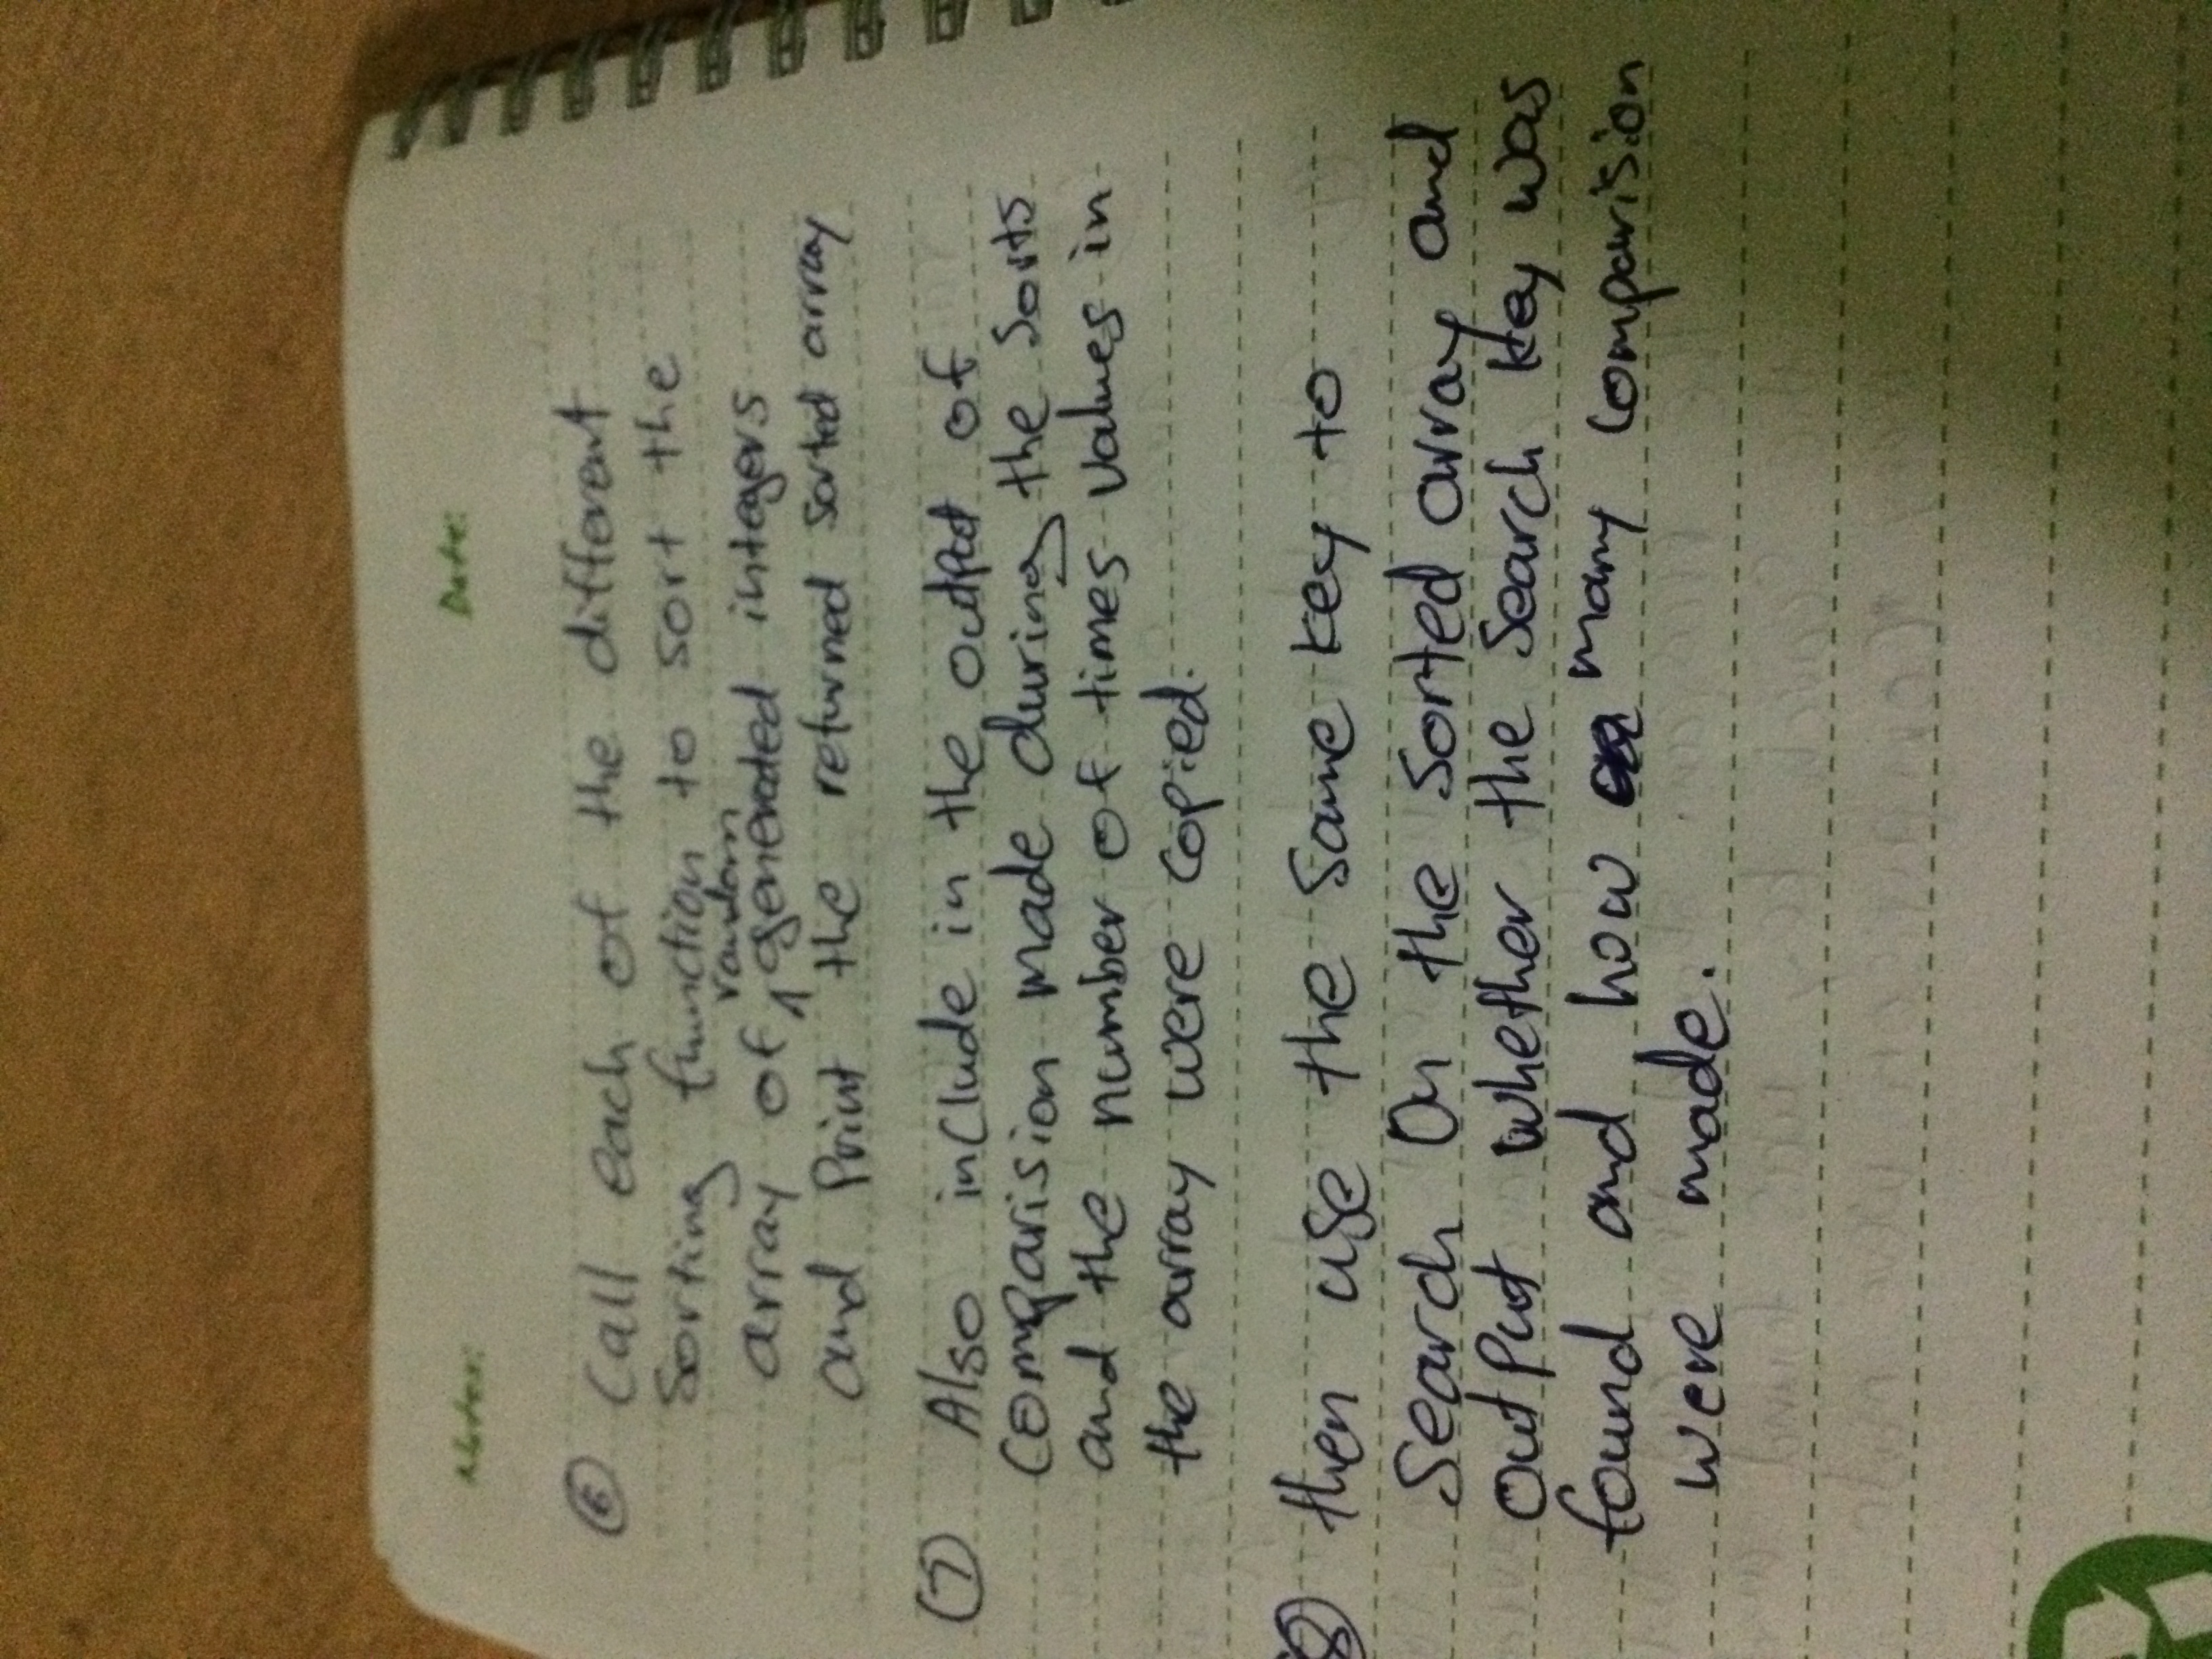 Notes: Date:
⑥ Call each of the different
Sorting function to sort the
random
array of ⁁ generated integers
and Print the returned sorted array
⑦ Also include in the output of
comparision made during the Sorts
and the number of times values in
the array were copied.
⑧ then use the Same key to
Search On the Sorted array and
output whether the Search key was
found and how many comparision
were made.